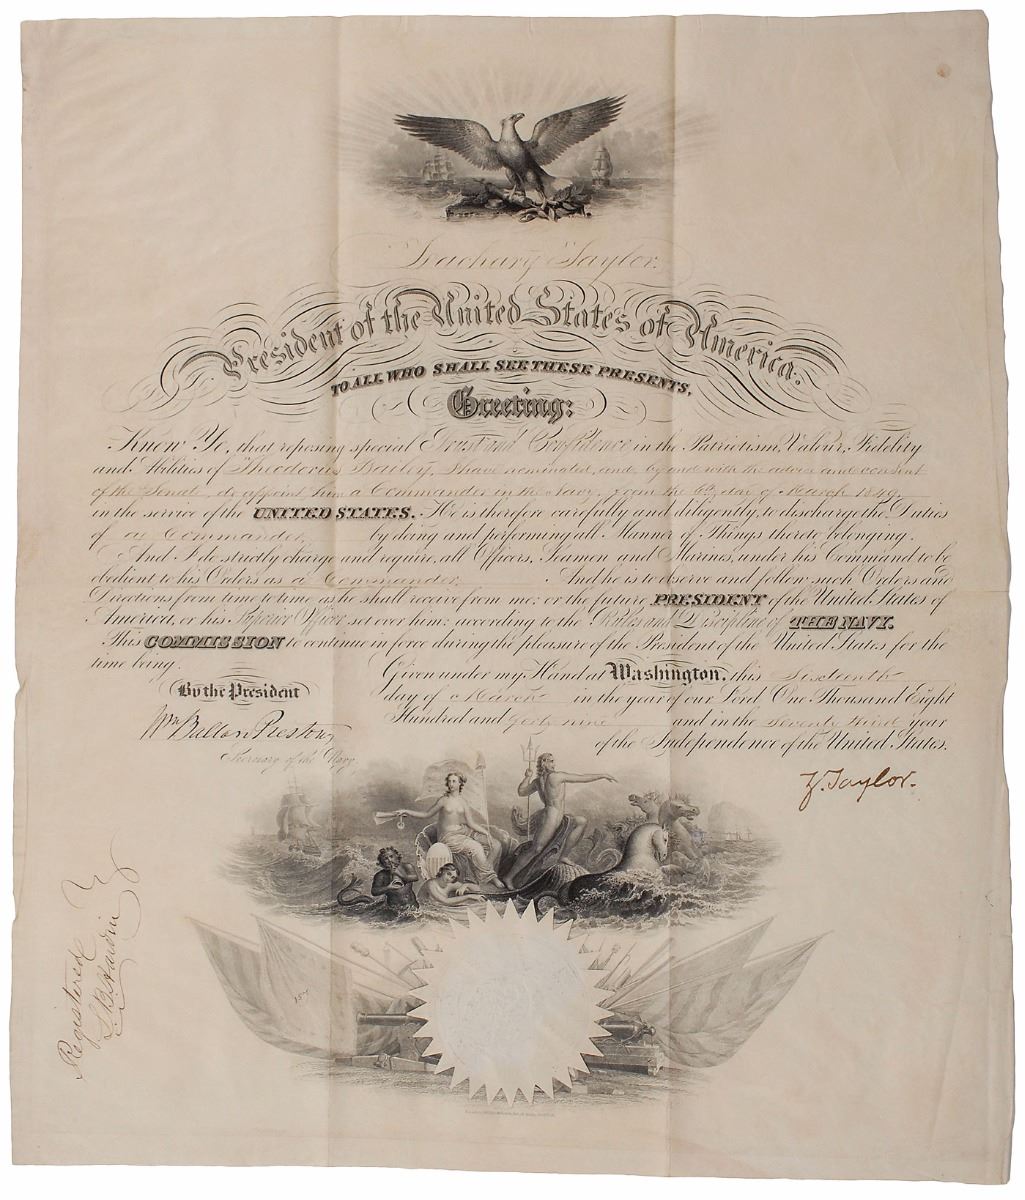 Zachary Taylor.
President of the United States of America.
TO ALL WHO SHALL SEE THESE PRESENTS,
Greeting:
Know Ye, that reposing special Trust and Confidence in the Patriotism, Valour, Fidelity
and Abilities of Theodorus Bailey, I have nominated, and, by and with the advice and consent
of the Senate, do appoint him a Commander in the Navy, from the 6th day of March 1849
in the service of the UNITED STATES. He is therefore carefully and diligently, to discharge the Duties
of a Commander, by doing and performing all Manner of Things thereto belonging.
And I do strictly charge and require, all Officers, Seamen and Marines, under his Command to be
obedient to his Orders as a Commander. And he is to observe and follow such Orders and
Directions from time to time as he shall receive from me; or the future PRESIDENT of the United States of
America, or his Superior Officer set over him; according to the Rules and Discipline of THE NAVY.
This COMMISSION to continue in force during the pleasure of the President of the United States for the
time being.
Given under my Hand at Washington, this Sixteenth
By the President
day of March in the year of our Lord One Thousand Eight
Hundred and forty nine and in the Seventy third year
Wm Ballard Preston
of the Independence of the United States.
Secretary of the Navy.
Z. Taylor.
Registered